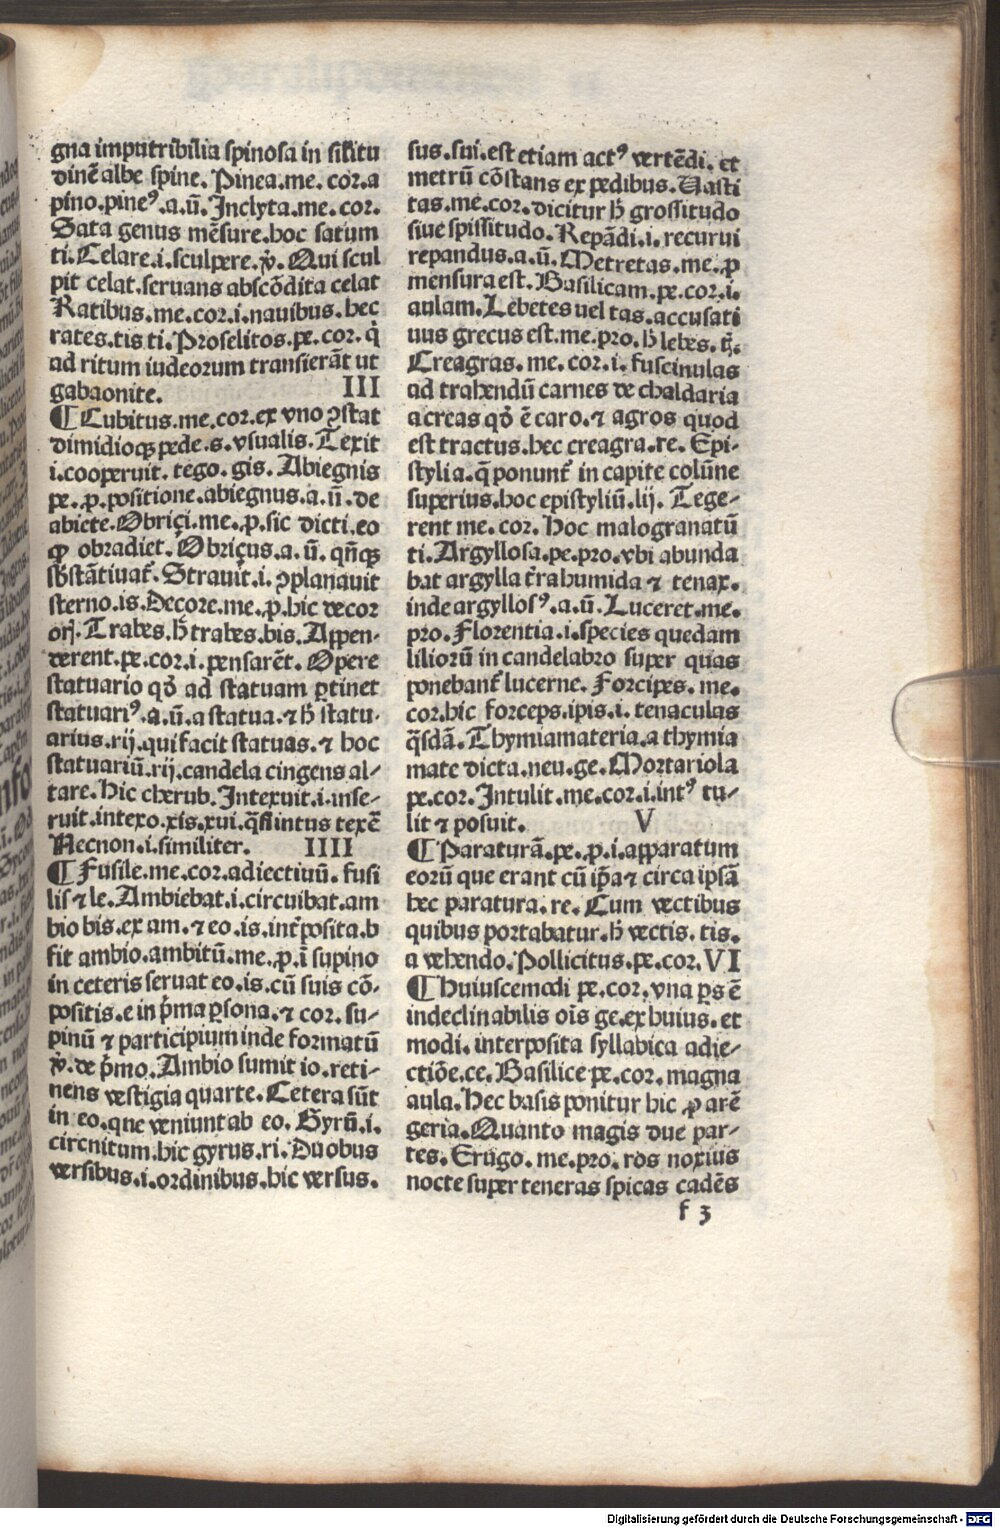 gna imputribilia spinosa in silitu
dinē albe spine. Pinea.me. cor.a
pino.pineꝰ.a.ū. Inclyta.me. cor.
Sata genus mēsure.hoc satum
ti. Celare.i.sculpere. v̓. Qui scul
pit celat.seruans abscōdita celat
Ratibus.me.cor.i.nauibus.hec
rates.tis ti. Proselitos.pe. cor. q̇
ad ritum iudeorum transierāt ut
gabaonite. III
¶ Cubitus.me.cor.ex vno ꝯstat
dimidioqꝫ pede.s.vsualis. Texit
i.cooperuit. tego. gis. Abiegnis
pe. ꝓ.positione.abiegnus.a.ū.de
abiete. Obriçi.me.ꝓ.sic dicti.eo
ꝙ obradiet. Obriçus.a.ū. qñqꝫ
sb̓stātiuat᷑. Strauit.i. ꝯplanauit
sterno.is. Decore.me.ꝓ.hic decor
orꝭ. Trabes. h̓ trabes.bis. Appen-
derent.pe.cor.i.pensarēt. Opere
statuario qđ ad statuam ꝑtinet
statuariꝰ.a.ū.a statua.⁊ h̓ statu-
arius.rij.qui facit statuas.⁊ hoc
statuariū.rij.candela cingens al-
tare. Hic cherub. Intexuit.i.inse-
ruit.intexo.xis.xui.q̄si intus texē
Necnon.i.similiter. IIII
¶ Fusile.me.cor.adiectiuū. fusi
lis ⁊ le. Ambiebat.i.circuibat.am
bio bis.ex am.⁊ eo.is.int̓posita.b
fit ambio.ambitū.me.ꝓ.i supino
in ceteris seruat eo.is.cū suis cō-
positis.e in p̄ma ꝑsona.⁊ cor. su-
pinū ⁊ participium inde formatū
v̓.de p̄mo. Ambio sumit io.reti-
nens vestigia quarte. Cetera sūt
in eo.que veniunt ab eo. Gyrū.i.
circuitum.hic gyrus.ri. Duobus
versibus.i.ordinibus.hic versus.
sus.sui.est etiam actꝰ vertēdi. et
metrū cōstans ex pedibus. Vasti
tas.me.cor.dicitur h̓ grossitudo
siue spissitudo. Repādi.i.recurui
repandus.a.ū. Metretas.me.ꝓ
mensura est. Basilicam.pe.cor.i.
aulam. Lebetes uel tas.accusati
uus grecus est.me.pro.h̓ lebes.
Creagras.me.cor.i.fuscinulas
ad trahendū carnes de chaldaria
a creas qđ ē caro.⁊ agros quod
est tractus.hec creagra.re. Epi-
stylia.q̄ ponunt᷑ in capite colūne
superius.hoc epistyliū.lij. Tege-
rent me. cor. Hoc malogranatū
ti. Argyllosa.pe.pro.vbi abunda
bat argylla t̓ra humida ⁊ tenax.
inde argyllosꝰ.a.ū. Luceret.me.
pro. Florentia.i.species quedam
liliorū in candelabro super quas
ponebant᷑ lucerne. Forcipes. me.
cor.hic forceps.ipis.i. tenaculas
q̄sdā. Thymiamateria.a thymia
mate dicta.neu.ge. Mortariola
pe.cor. Intulit.me.cor.i.intꝰ tu-
lit ⁊ posuit. V
¶ Paraturā.pe.ꝓ.i.apparatum
eorū que erant cū ip̄a ⁊ circa ipsā
hec paratura.re. Cum vectibus
quibus portabatur.h̓ vectis. tis.
a vehendo. Pollicitus.pe.cor. VI
¶ Huiuscemodi pe.cor.vna ꝑs ē
indeclinabilis ois ge.ex huius.et
modi.interposita syllabica adie-
ctiōe.ce. Basilice pe.cor.magna
aula. Hec basis ponitur hic ꝓ arē
geria. Quanto magis due par-
tes. Erugo.me.pro. ros noxius
nocte super teneras spicas cadēs
f 3
Digitalisierung gefördert durch die Deutsche Forschungsgemeinschaft - DFG